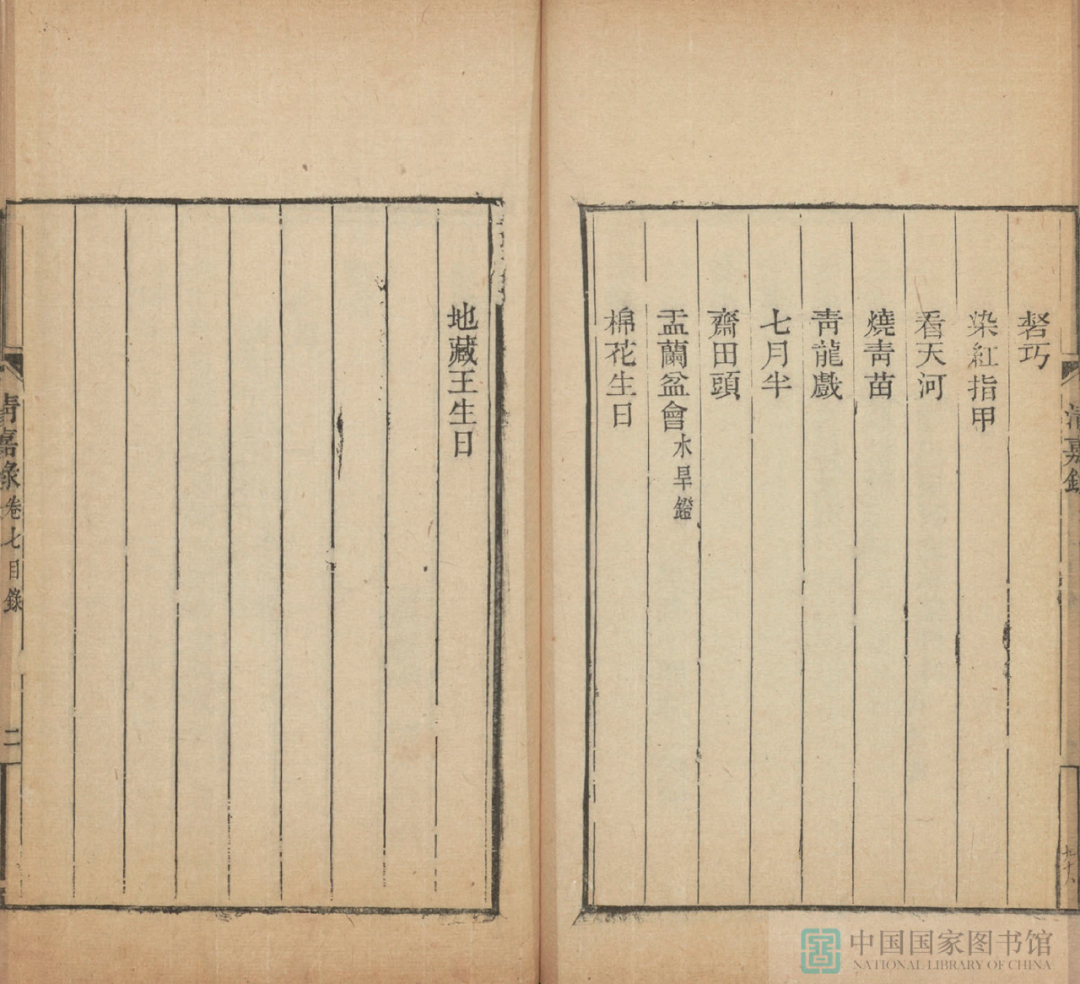 磬巧
染紅指甲
看天河
燒靑苗
靑龍戲
七月半
齋田頭
盂蘭盆會 水旱鐙
棉花生日
清嘉錄
地藏王生日
清嘉錄 卷七目錄 二
中国国家图书馆
NATIONAL LIBRARY OF CHINA